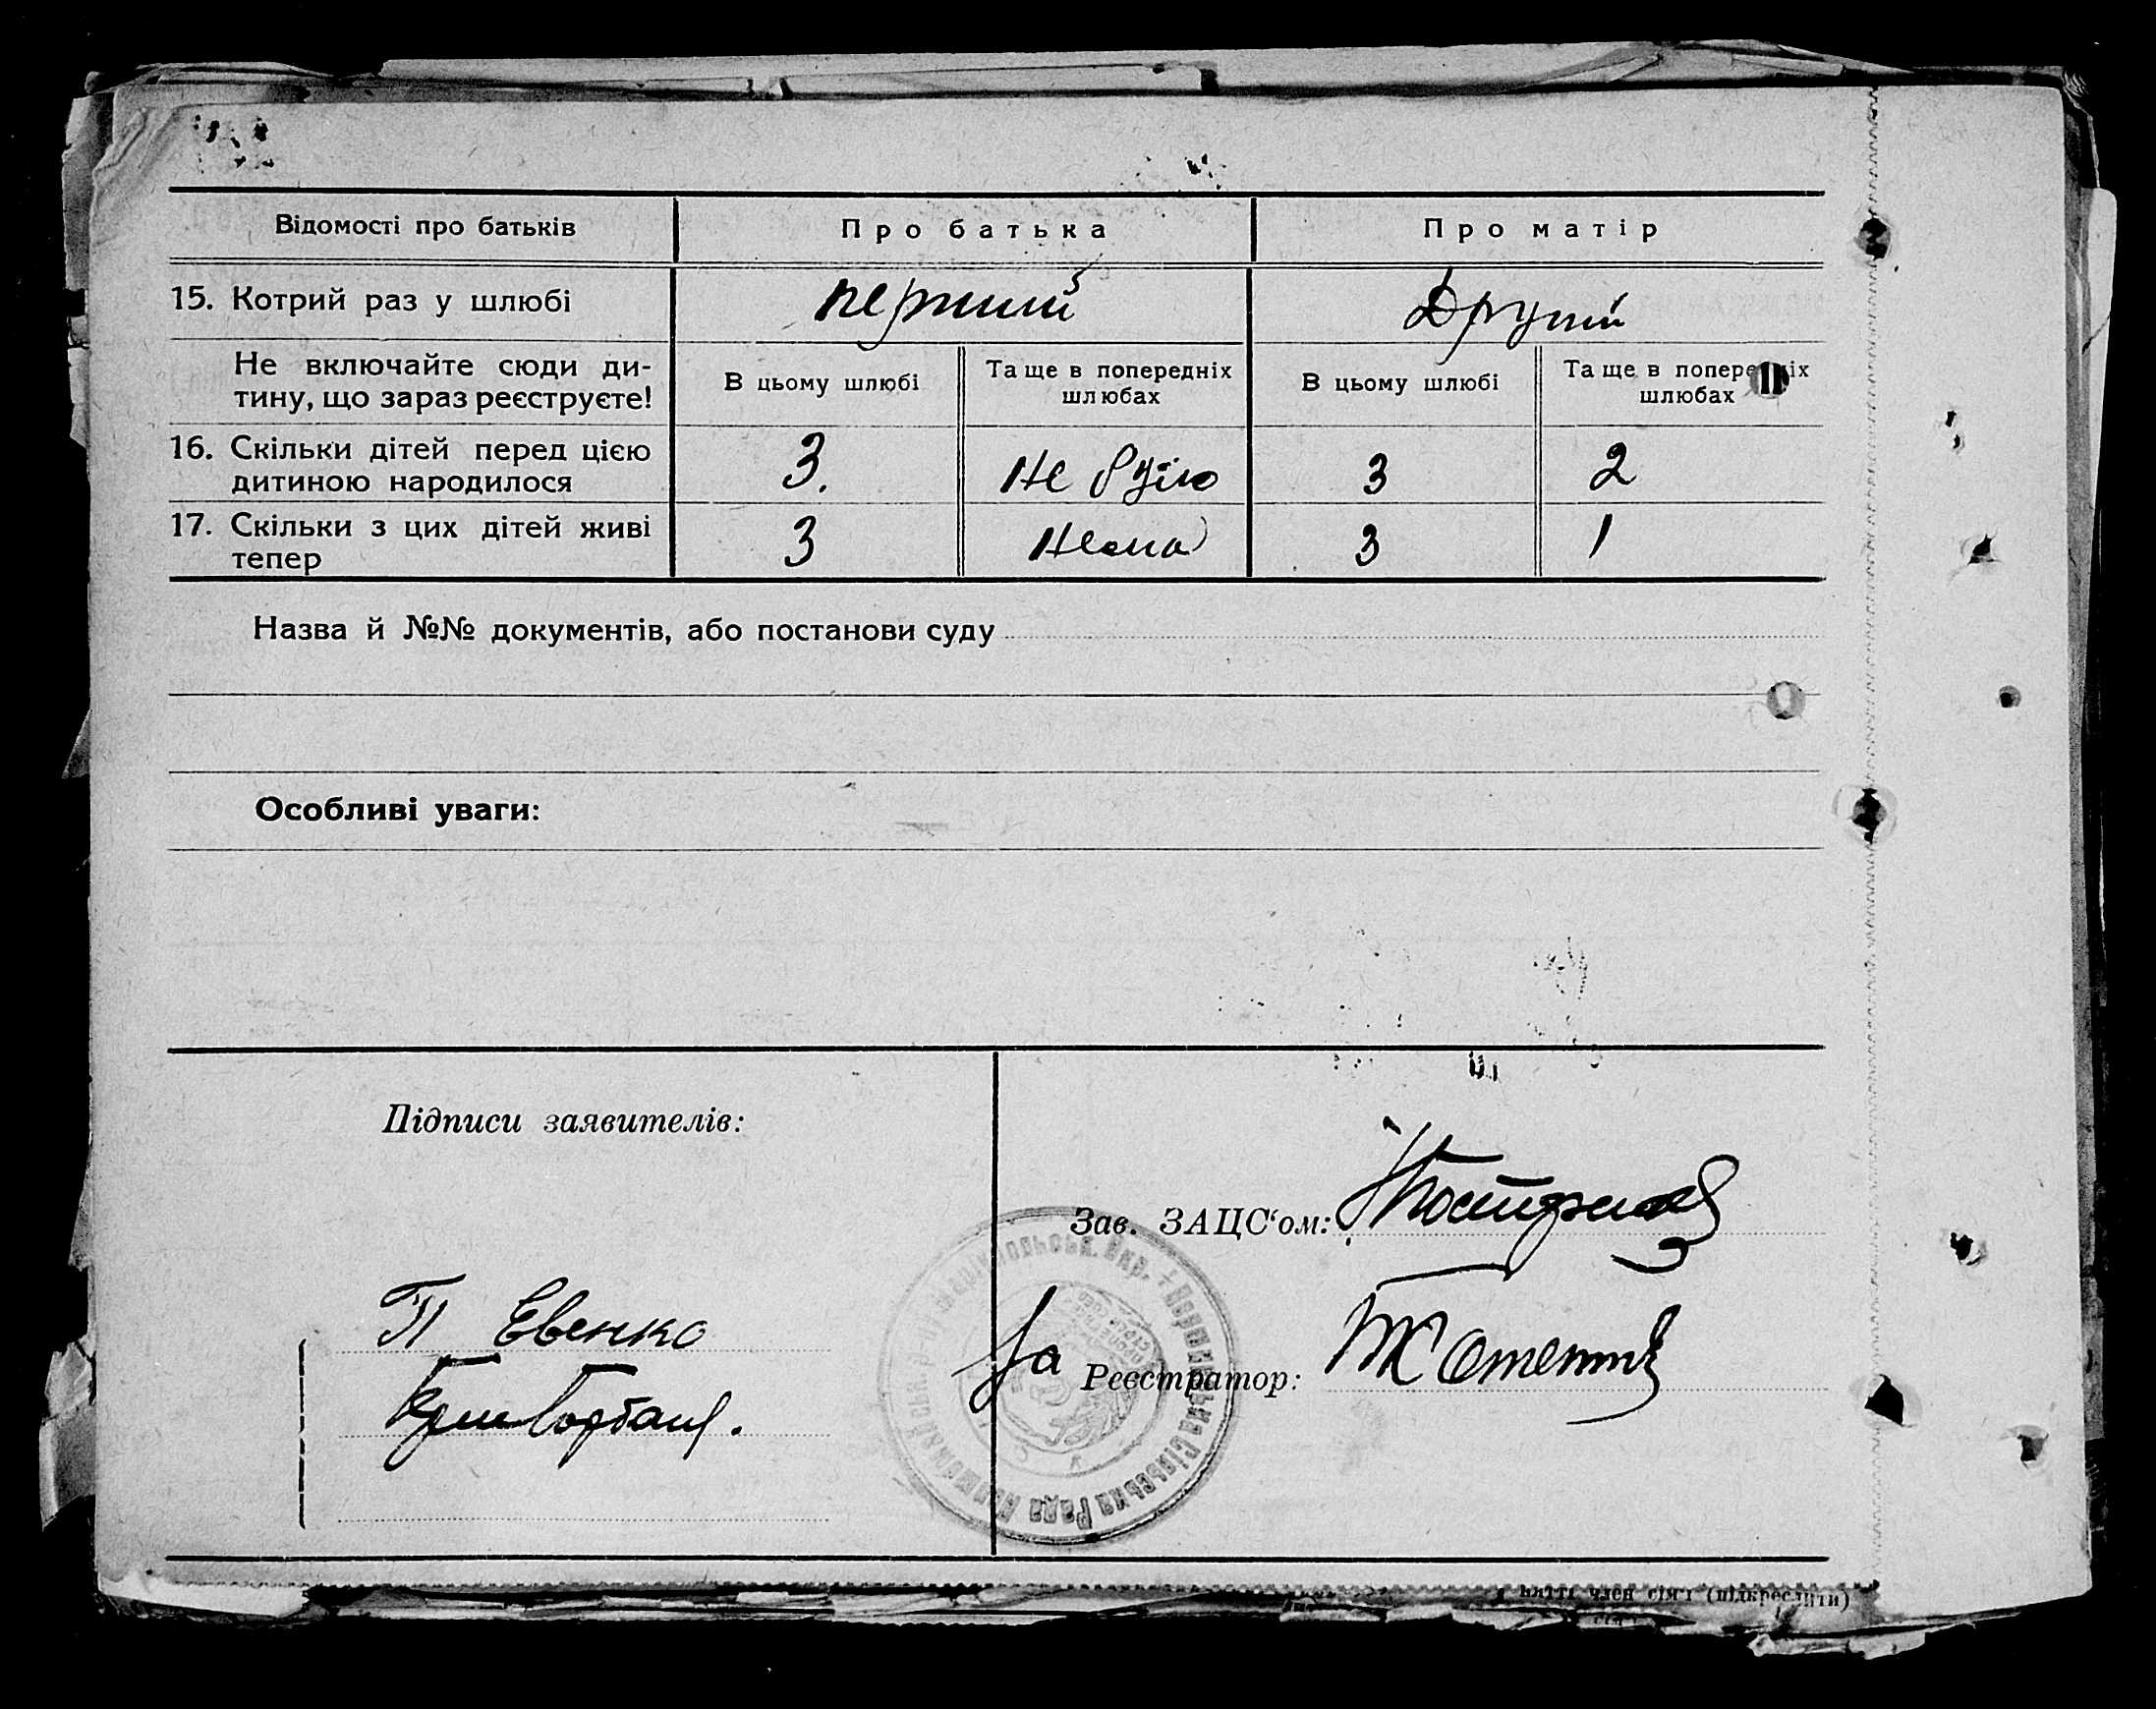 Відомості про батьків Про батька Про матір
15. Котрий раз у шлюбі перший Другий
Не включайте сюди ди-
тину, що зараз реєструєте!
В цьому шлюбі
Та ще в попередніх
шлюбах
В цьому шлюбі
Та ще в попередніх
шлюбах
16. Скільки дітей перед цією
дитиною народилося
3. Не було 3 2
17. Скільки з цих дітей живі
тепер
3 Нема 3 1
Назва й №№ документів, або постанови суду
Особливі уваги:
Підписи заявителів:
Зав. ЗАЦС‘ом:
П Евенко
За Реєстратор:
Горбань.
Сільська Рада
член сім'ї (підкреслити)